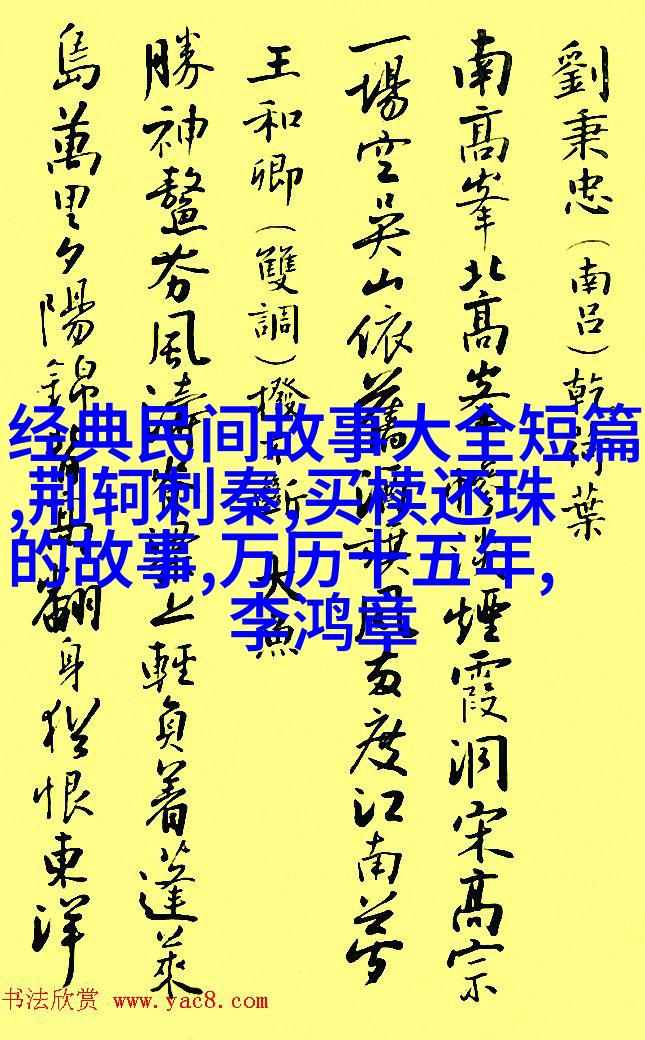 劉秉忠（南呂）乾荷葉
南高峯北高峯慘淡煙霞洞宋高宗
一場空吳山依舊酒旗風兩度江南夢
王和卿（雙調）撥不斷 大魚
勝神鰲夯風濤脊梁上輕負着蓬萊
島萬里夕陽錦背高翻身猶恨東洋
经典民间故事大全短篇
,荆轲刺秦,买椟还珠
的故事,万历十五年,
李鸿章
书法欣赏 www.yac8.com